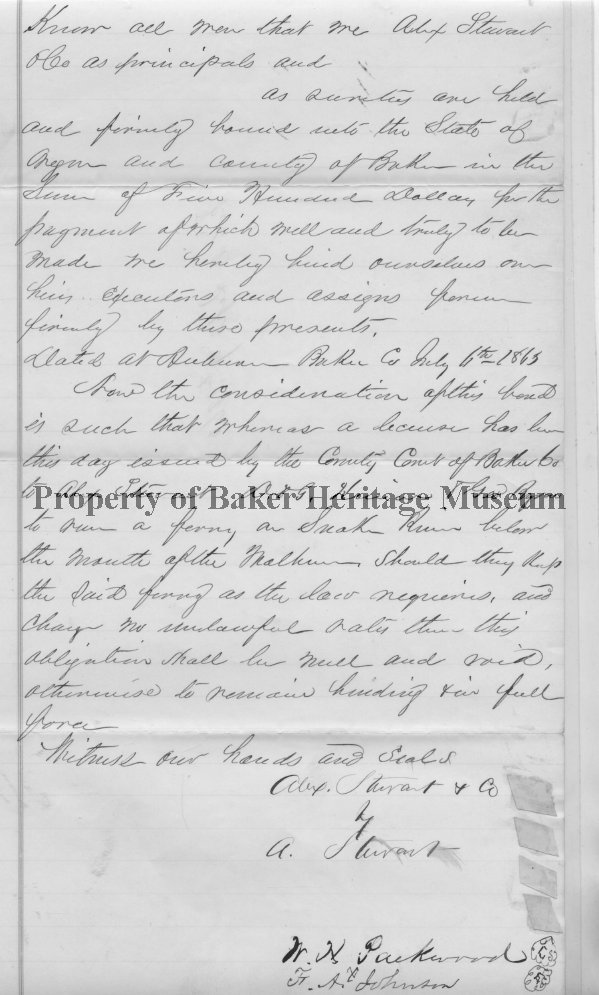 Know all men that we Alex Stewart
& Co as principals and
as sureties are held
and firmly bound unto the State of
Oregon and county of Baker in the
Sum of Five Hundred Dollars for the
payment of which well and truly to be
made we hereby bind ourselves our
heirs executors and assigns
firmly by these presents.
Dated at Auburn Baker Co July 6th 1863
Now the consideration of this bond
is such that whereas a license has been
this day issued by the County Court of Baker Co
to Alex Stewart
Property of Baker Heritage Museum
to run a ferry on Snake River below
the mouth of the Malheur, Should they keep
the said ferry as the law requires, and
charge no unlawful rates then this
obligation shall be null and void,
otherwise to remain binding & in full
force
Witness our hands and Seals
Alex. Stewart & Co
by
A. Stewart
W. H. Packwood
Johnson